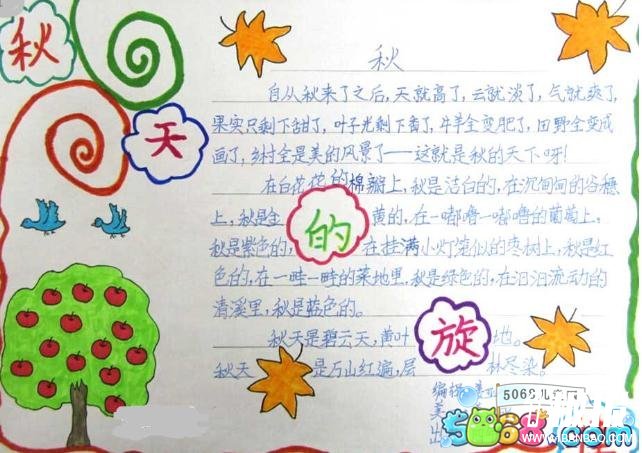 秋
天
的
旋
秋
自从秋来了之后，天就高了，云就淡了，气就爽了，
果实只剩下甜了，叶子光剩下香了，牛羊全变肥了，田野全变成
画了，乡村全是美的风景了——这就是秋的天下呀！
在白花花的棉瓣上，秋是洁白的，在沉甸甸的谷穗
上，秋是金黄的，在一嘟噜一嘟噜的葡萄上，
秋是紫色的，在挂满小灯笼似的枣树上，秋是红
色的，在一畦一畦的菜地里，秋是绿色的，在汩汩流动的
清溪里，秋是蓝色的。
秋天是碧云天，黄叶地。
秋天是万山红遍，层林尽染。
编辑
美
出
5068儿童网
5068.com